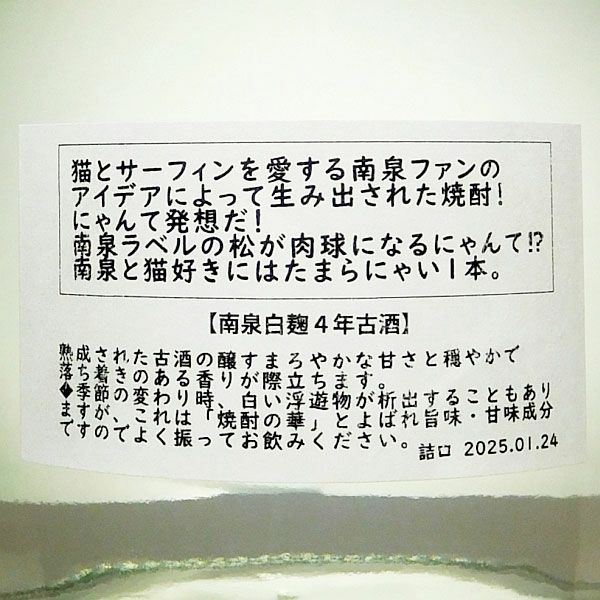 猫とサーフィンを愛する南泉ファンの
アイデアによって生み出された焼酎!
にゃんて発想だ!
南泉ラベルの松が肉球になるにゃんて!?
南泉と猫好きにはたまらにゃい1本。
【南泉白麹4年古酒】
熟成された古酒の醸すまろやかな甘さと穏やかで
落ち着きのある香りが際立ちます。
�季節の変わり時、白い浮遊物が析出することもあり
ますが、これは「焼酎の華」とよばれ旨味・甘味成分
ですのでよく振ってお飲みください。
詰口 2025.01.24